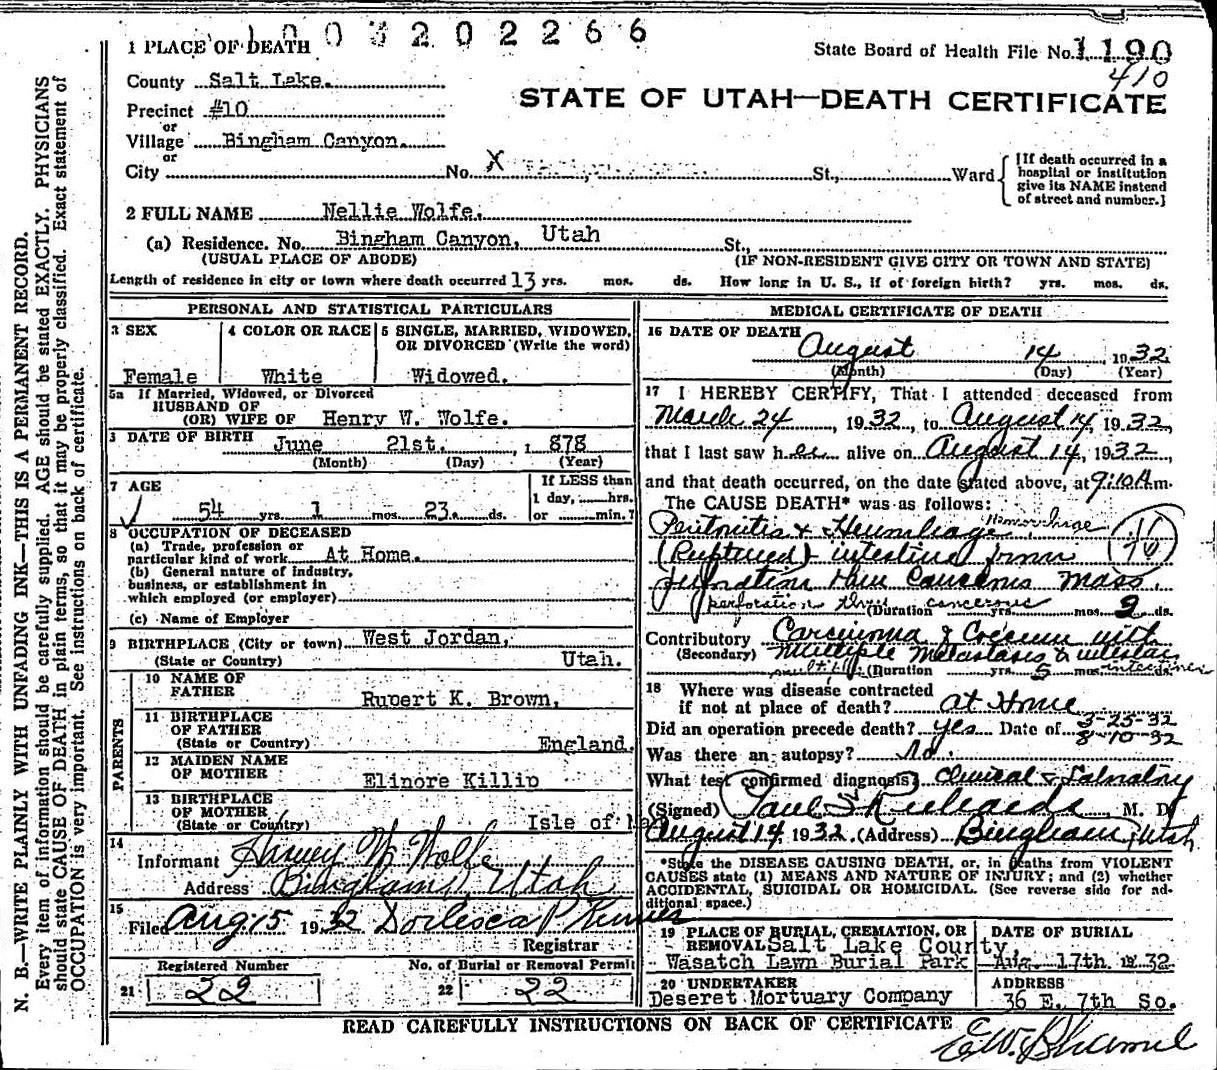 1003202266
1 PLACE OF DEATH
State Board of Health File No. 1190
410
County Salt Lake.
STATE OF UTAH—DEATH CERTIFICATE
Precinct #10
or
Village Bingham Canyon.
or
City No. X St., Ward
[If death occurred in a
hospital or institution
give its NAME instead
of street and number.]
2 FULL NAME Nellie Wolfe.
(a) Residence. No. Bingham Canyon, Utah St.,
(USUAL PLACE OF ABODE) (IF NON-RESIDENT GIVE CITY OR TOWN AND STATE)
Length of residence in city or town where death occurred 13 yrs. mos. ds. How long in U. S., if of foreign birth? yrs. mos. ds.
PERSONAL AND STATISTICAL PARTICULARS
3 SEX
Female
4 COLOR OR RACE
White
5 SINGLE, MARRIED, WIDOWED,
OR DIVORCED (Write the word)
Widowed.
5a If Married, Widowed, or Divorced
HUSBAND OF
(OR) WIFE OF Henry W. Wolfe.
3 DATE OF BIRTH June 21st. 1 878
(Month) (Day) (Year)
7 AGE
54 yrs. 1 mos 23. ds.
If LESS than
1 day, hrs.
or min.?
8 OCCUPATION OF DECEASED
(a) Trade, profession or
particular kind of work At Home.
(b) General nature of industry,
business, or establishment in
which employed (or employer)
(c) Name of Employer
9 BIRTHPLACE (City or town) West Jordan,
(State or Country) Utah.
PARENTS
10 NAME OF
FATHER Rupert K. Brown,
11 BIRTHPLACE
OF FATHER
(State or Country) England.
12 MAIDEN NAME
OF MOTHER Elinore Killip
13 BIRTHPLACE
OF MOTHER
(State or Country) Isle of Man
14
Informant Harvey W Wolfe
Address Bingham, Utah
15
Filed Aug. 15 1932
Registrar
Registered Number No. of Burial or Removal Permit
21 22 22 22
MEDICAL CERTIFICATE OF DEATH
16 DATE OF DEATH
August 14 1932
(Month) (Day) (Year)
17 I HEREBY CERTIFY, That I attended deceased from
March 24, 1932, to August 14, 1932,
that I last saw her alive on August 14, 1932,
and that death occurred, on the date stated above, at 9:10 A.m.
The CAUSE DEATH* was as follows:
Peritonitis & Hemorrhage Hemorrhage
(Ruptured) intestine from
perforation thru Cancerous Mass.
perforation thru cancerous
(Duration yrs. mos. 2 ds.
Contributory Carcinoma of Coecum with
(Secondary) multiple metastasis to intestines
multiple (Duration yrs. 5 mos. intestines ds.
18 Where was disease contracted
if not at place of death? at Home
Did an operation precede death? yes Date of 3-25-32
8-10-32
Was there an autopsy? No.
What test confirmed diagnosis? Clinical & Laboratory
(Signed) Paul S Richards M. D
August 14 1932 (Address) Bingham, Utah
*State the DISEASE CAUSING DEATH, or, in deaths from VIOLENT
CAUSES state (1) MEANS AND NATURE OF INJURY; and (2) whether
ACCIDENTAL, SUICIDAL OR HOMICIDAL. (See reverse side for ad-
ditional space.)
19 PLACE OF BURIAL, CREMATION, OR
REMOVAL Salt Lake County,
Wasatch Lawn Burial Park
DATE OF BURIAL
Aug. 17th. 1932
20 UNDERTAKER
Deseret Mortuary Company
ADDRESS
36 E. 7th So.
READ CAREFULLY INSTRUCTIONS ON BACK OF CERTIFICATE
N. B.—WRITE PLAINLY WITH UNFADING INK—THIS IS A PERMANENT RECORD.
Every item of information should be carefully supplied. AGE should be stated EXACTLY. PHYSICIANS
should state CAUSE OF DEATH in plain terms, so that it may be properly classified. Exact statement of
OCCUPATION is very important. See instructions on back of certificate.